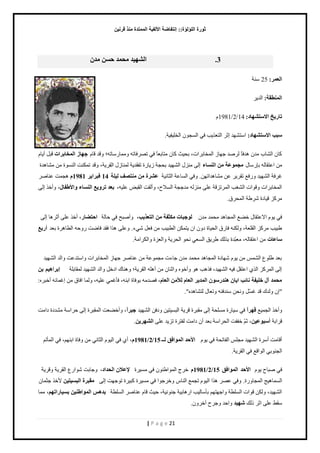 ثورة اللؤلؤة: إنتفاضة الألفية الممتدة منذ قرنين
3. الشهيد محمد حسن مدن
العمر: 25 سنة
المنطقة: الدير
تاريخ الاستشهاد: 1981/2/14م
سبب الاستشهاد: استشهد إثر التعذيب في السجون الخليفية.
كان الشاب مدن هدفاً لرصد جهاز المخابرات، بحيث كان متابعاً في تصرفاته وممارساته؛ وقد قام جهاز المخابرات قبل أيام
من اعتقاله بإرسال مجموعة من النساء إلى منزل الشهيد بحجة زيارة تفقدية لمنازل القرية، وقد تمكنت النسوة من مشاهدة
غرفة الشهيد ورفع تقرير عن مشاهداتهن. وفي الساعة الثانية عشرة من منتصف ليلة 14 فبراير 1981م هجمت عناصر
المخابرات وقوات الشغب المرتزقة على منزله مدججة السلاح، وألقت القبض عليه، بعد ترويع النساء والأطفال، وأُخذ إلى
مركز قيادة شرطة المحرق.
في يوم الاعتقال خضع المجاهد محمد مدن لوجبات مكثّفة من التعذيب، وأصبح في حالة احتضار، أخذ على أثرها إلى
طبيب مركز القلعة، ولكنه فارق الحياة دون أن يتمكن الطبيب من فعل شيء. وعلى هذا فقد فاضت روحه الطاهرة بعد أربع
ساعات من اعتقاله، معبّدة بذلك طريق السعي نحو الحرية والعزة والكرامة.
بعد طلوع الشمس من يوم شهادة المجاهد محمد مدن جاءت مجموعة من عناصر جهاز المخابرات واستدعت والد الشهيد
إلى المركز الذي اعتقل فيه الشهيد، فذهب هو وأخوه واثنان من أهله القرية؛ وهناك ادخل والد الشهيد لمقابلة إبراهيم بن
محمد آل خليفة نائب ايان هندرسون المدير العام للأمن العام، فصدمه بوفاة ابنه، فأغمي عليه، ولما أفاق من إغمائه أخبره:
"إن ولدك قد عَمل ونحن سندفنه وتعال لتشاهده".
وأُخذ الجميع قهراً في سيارة مسلحة إلى مقبرة قرية البسيتين ودفن الشهيد جبراً، وأُخضعت المقبرة إلى حراسة مشددة دامت
قرابة أسبوعين، ثمّ خففت الحراسة بعد أن دامت لفترة تزيد على الشهرين.
أقامت أسرة الشهيد مجلس الفاتحة في يوم الأحد الموافق لــ 1981/2/15م، أي في اليوم الثاني من وفاة ابنهم، في المأتم
الجنوبي الواقع في القرية.
في صباح يوم الأحد الموافق 1981/2/15م خرج المواطنون في مسيرة لإعلان الحداد، وجابت شوارع القرية وقرية
السماهيج المجاورة. وفي عصر هذا اليوم تجمع الناس وخرجوا في مسيرة كبيرة توجهت إلى مقبرة البسيتين لأخذ جثمان
الشهيد، ولكن قوات السلطة واجهتهم بأساليب ارهابية جنونية، حيث قام عناصر السلطة بدهس المواطنين بسياراتهم، مما
سقط على اثر ذلك شهيد واحد وجرح آخرون.
| P a g e 21